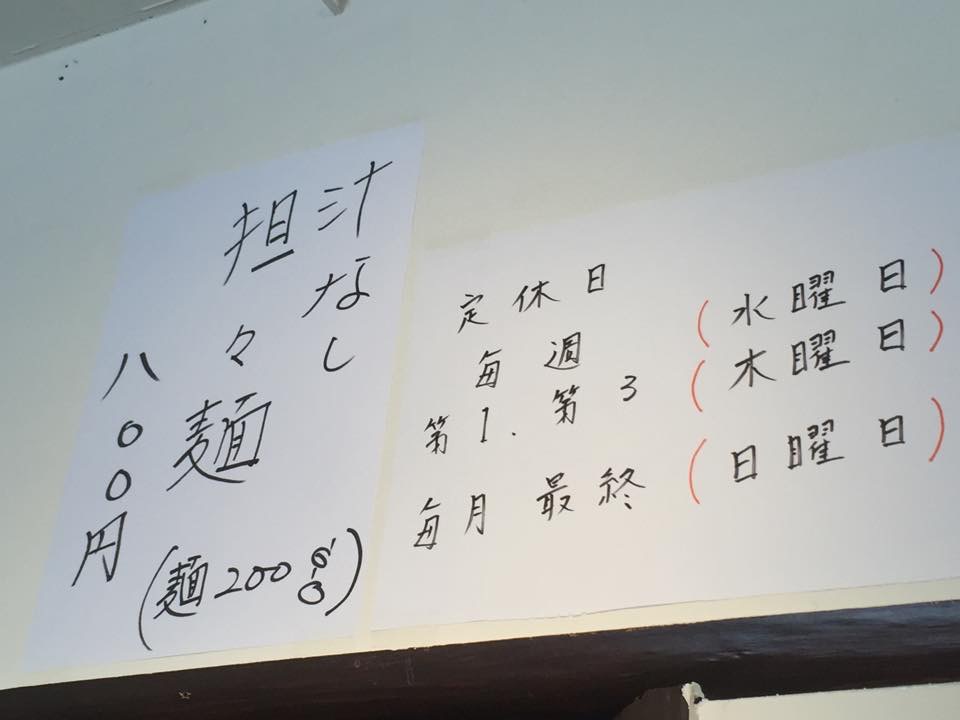 汁なし
担々麺
(麺200g)
八〇〇円
定休日
毎週 (水曜日)
第1.第3 (木曜日)
毎月最終 (日曜日)